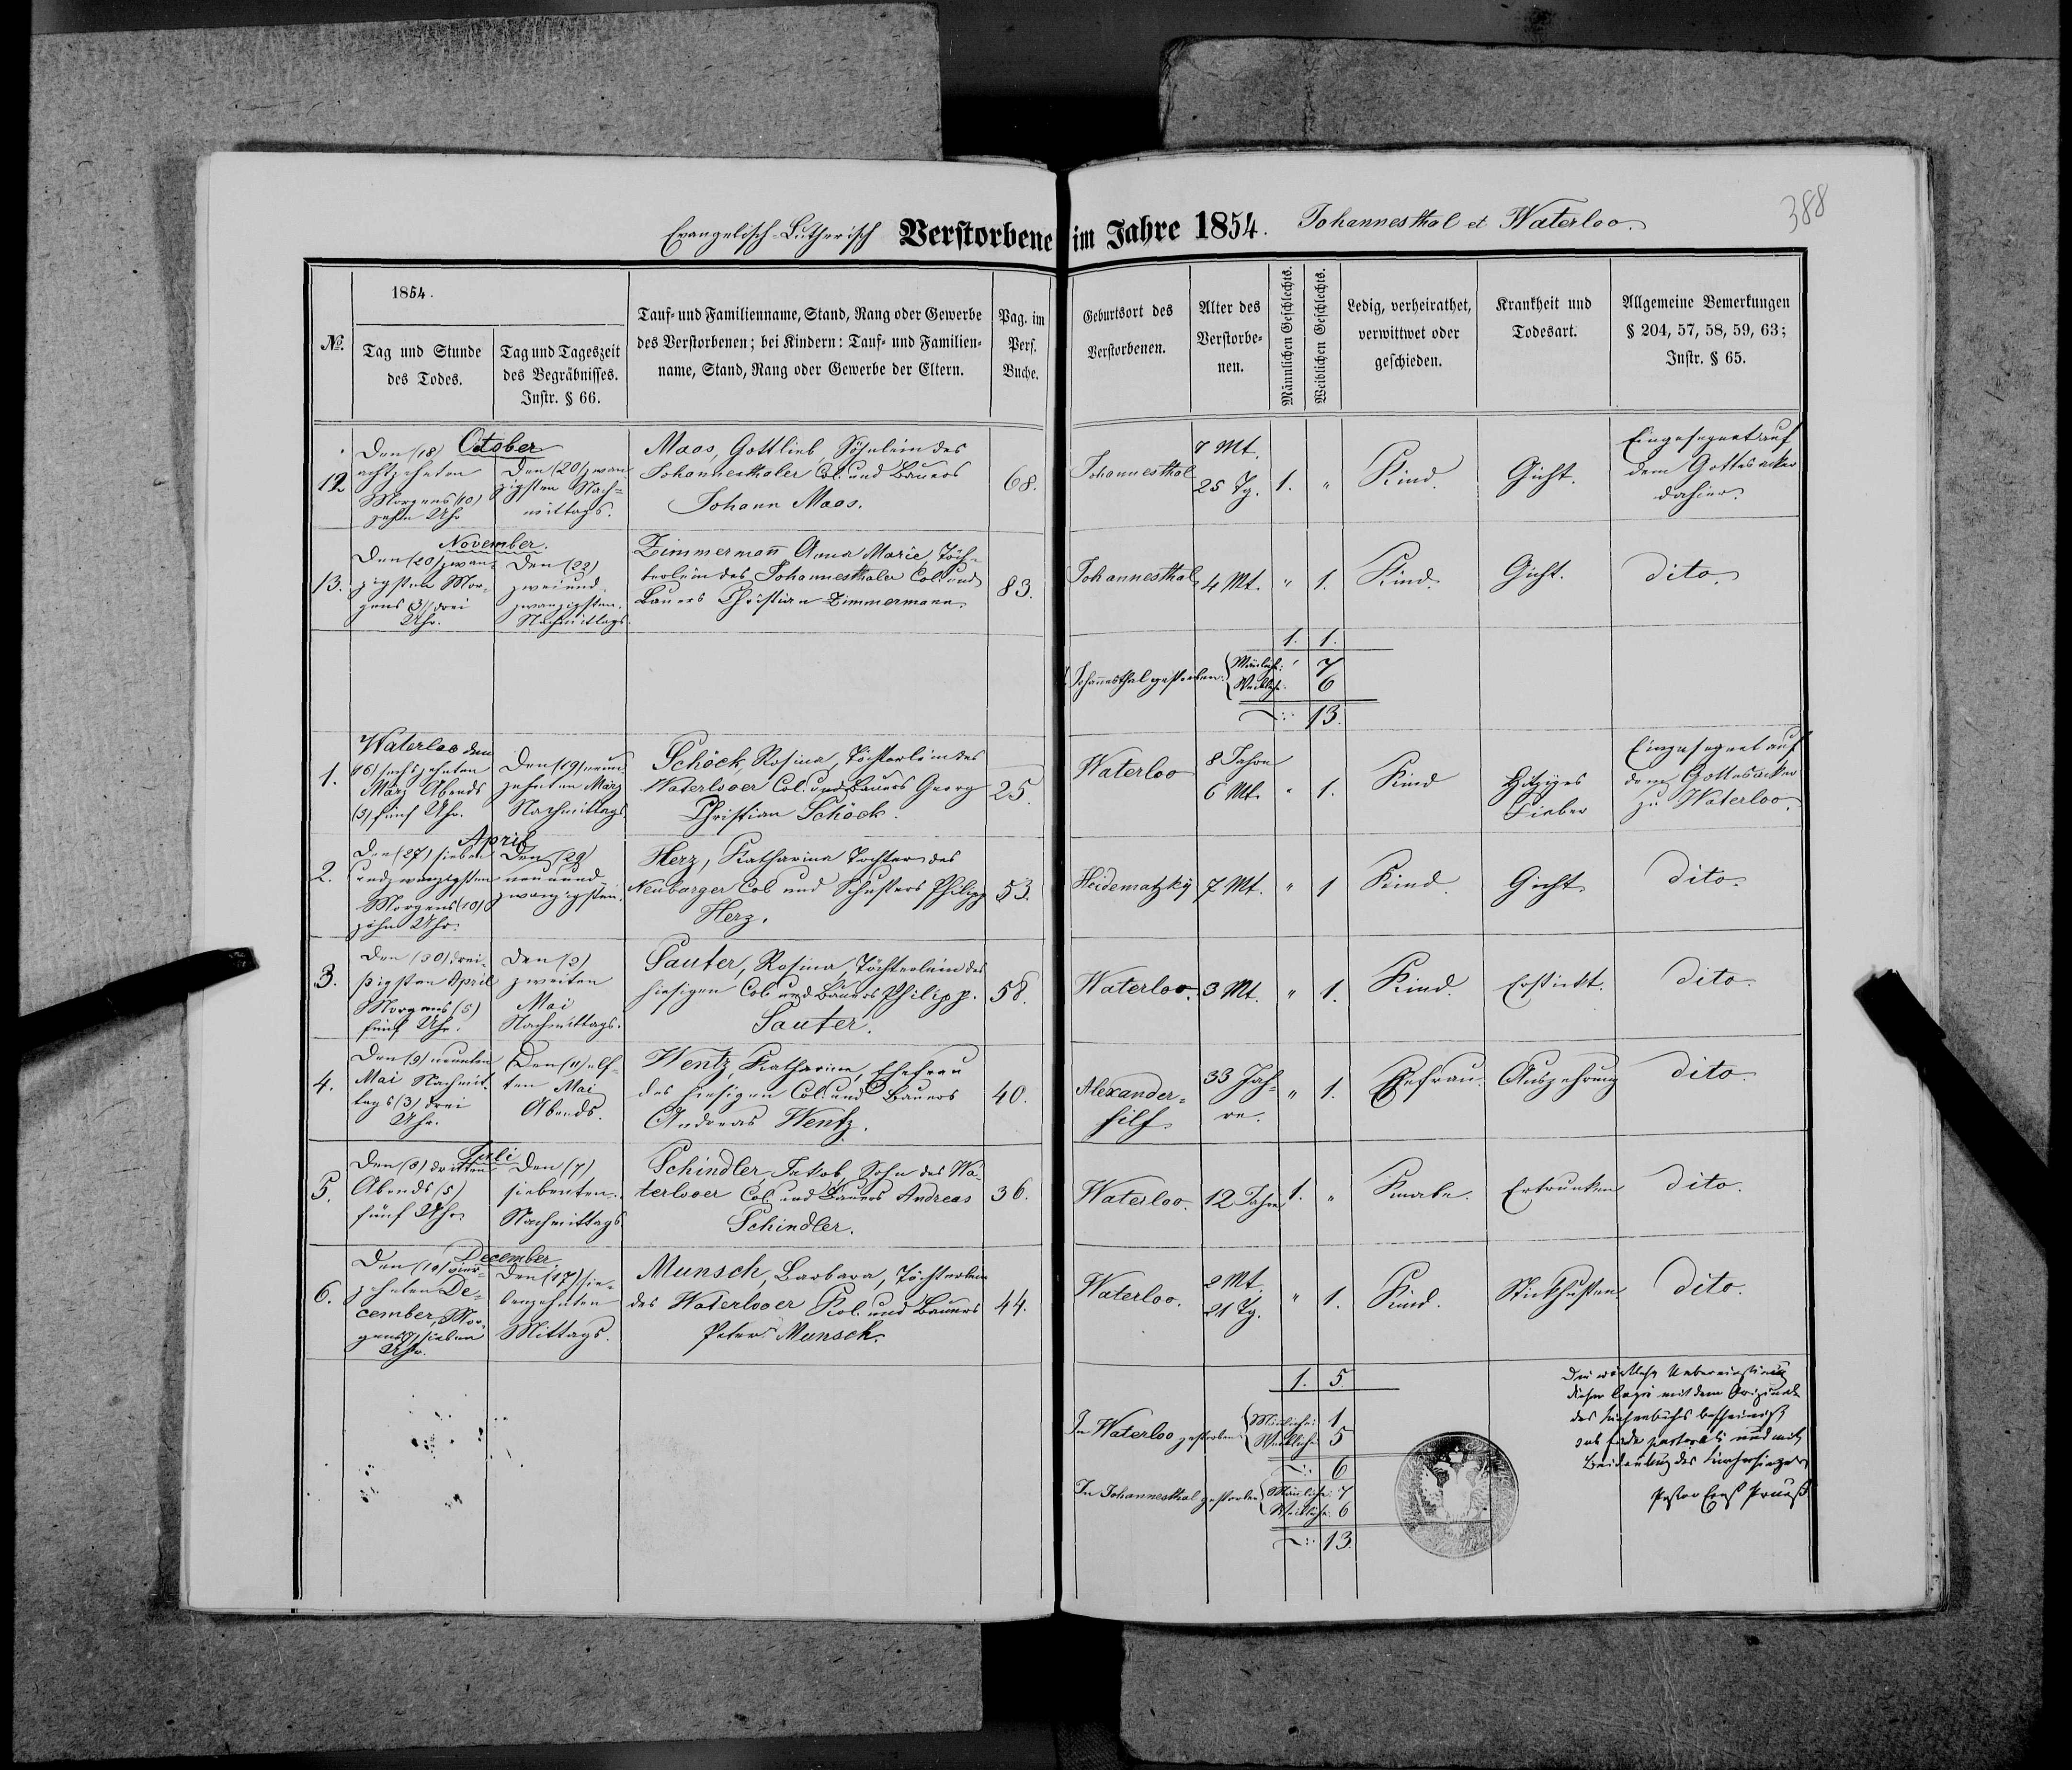 388
Evangelisch-Lutherisch Verstorbene im Jahre 1854. Johannesthal et Waterloo.
No.
1854.
Tag und Stunde
des Todes.
Tag und Tageszeit
des Begräbnisses.
Instr. § 66.
Tauf- und Familienname, Stand, Rang oder Gewerbe
des Verstorbenen; bei Kindern: Tauf- und Familien-
name, Stand, Rang oder Gewerbe der Eltern.
Pag. im
Pers.
Buche.
Geburtsort des
Verstorbenen.
Alter des
Verstorbe-
nen.
Männlichen Geschlechts.
Weiblichen Geschlechts.
Ledig, verheirathet,
verwittwet oder
geschieden.
Krankheit und
Todesart.
Allgemeine Bemerkungen
§ 204, 57, 58, 59, 63;
Instr. § 65.
October
12
Den (18)
achtzehnten
Morgens (10)
zehn Uhr
Den (20) zwan
zigsten Nach-
mittags.
Maas, Gottlieb, Söhnlein des
Johannesthaler Col. und Bauers
Johann Maas.
68.
Johannesthal
7 Mt.
25 Tg.
1.
"
Kind.
Gicht.
Eingesegnet auf
dem Gottesacker
dahier.
November.
13.
Den (20) zwan-
zigsten Mor-
gens (3) drei
Uhr.
Den (22)
zweiund
zwanzigsten.
Nachmittags.
Zimmermann Anna Marie, Töch-
terlein des Johannesthaler Col. und
Bauers Christian Zimmermann.
83.
Johannesthal
4 Mt.
"
1.
Kind.
Gicht.
dito.
1. 1.
Johannesthal gestorben:
Männliche: 7
Weibliche: 6
13.
1.
Waterloo den
(16) sechszehnten
März Abends
(5) fünf Uhr.
Den (19) neun
zehnten März
Nachmittags
Schöck, Rosina, Töchterlein des
Waterlooer Col. und Bauers Georg
Christian Schöck.
25.
Waterloo
8 Jahre
6 Mt.
"
1.
Kind
Hitziges
Fieber
Eingesegnet auf
dem Gottesacker
zu Waterloo.
April
2.
Den (27) sieben
undzwanzigsten
Morgens (10)
zehn Uhr.
Den (29)
neunund
zwanzigsten.
Herz, Katharina Tochter des
Neuburger Col. und Schusters Philipp
Herz.
53.
Heidematzky
7 Mt.
"
1
Kind.
Gicht
dito.
3.
Den (30) drei-
ßigsten April
Morgens (5)
fünf Uhr.
Den (2)
zweiten
Mai
Nachmittags.
Sauter, Rosina, Töchterlein des
hiesigen Col. und Bauers Philipp.
Sauter.
58.
Waterloo.
3 Mt.
"
1.
Kind.
Erstickt.
dito.
4.
Den (9) neunten
Mai Nachmit-
tags (3) drei
Uhr.
Den (11) elf-
ten Mai
Abends.
Wentz, Katharina, Ehefrau
des hiesigen Col. und Bauers
Andreas Wentz.
40.
Alexander-
hilf.
33 Jah-
re.
"
1.
Ehefrau
Auszehrung
dito.
Juli
5.
Den (3) dritten
Abends (5)
fünf Uhr.
Den (7)
siebenten.
Nachmittags
Schindler, Jakob, Sohn des Wa-
terlooer Col. und Bauers Andreas
Schindler.
36.
Waterloo.
12 Jahre
1.
"
Knabe.
Ertrunken
dito.
December.
6.
Den (14) vier-
zehnten De-
cember, Mor-
gens (7) sieben
Uhr.
Den (17) sie-
benzehnten
Mittags.
Munsch, Barbara, Töchterlein
des Waterlooer Kol. und Bauers
Peter Munsch.
44.
Waterloo.
2 Mt.
21 Tg.
"
1.
Kind.
Stickhusten
dito.
1. 5.
In Waterloo gestorben:
Männliche: 1
Weibliche: 5
6
In Johannesthal gestorben
Männliche: 7
Weibliche: 6
13.
Die wörtliche Uebereinstimung
dieser Copie mit dem Original
des Kirchenbuchs bescheinigt
sub fide pastorali und mit
Beidrukung des Kirchensiegels
Pastor